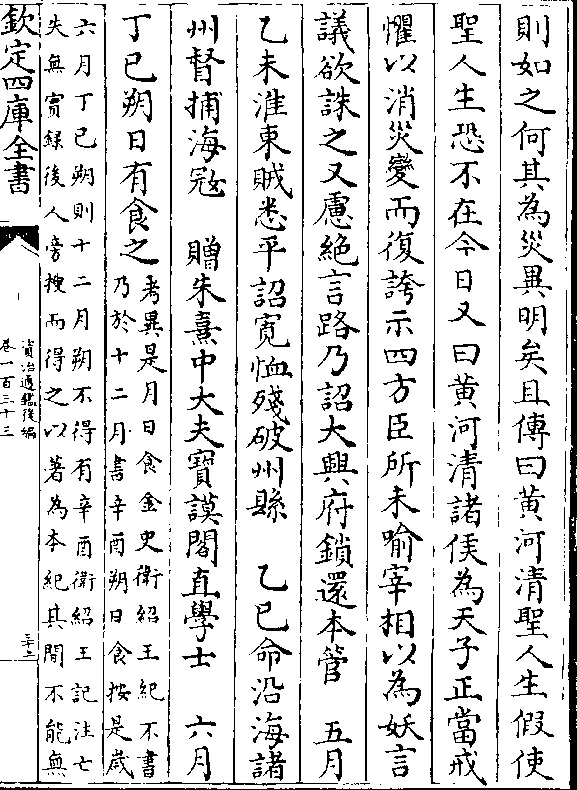 則如之何其為災異明矣且傳曰黄河清聖人生假使
聖人生恐不在今日又曰黄河清諸侯為天子正當戒
懼以消災變而復誇示四方臣所未喻宰相以為妖言
議欲誅之又慮絶言路乃詔大興府鎖還本管　五月
乙未淮東賊悉平詔寛恤殘破州縣　乙巳命沿海諸
州督捕海㓂　贈朱熹中大夫寳謨閣直學士　六月
丁巳朔日有食之
考異是月日食金史衛紹王紀不書
乃於十二月書辛酉朔日食按是嵗
六月丁巳朔則十二月朔不得有辛酉衛紹王記注亡
失無實録後人旁搜而得之以著為本紀其間不能無
欽定四庫全書
資治通鑑後編
卷一百三十三